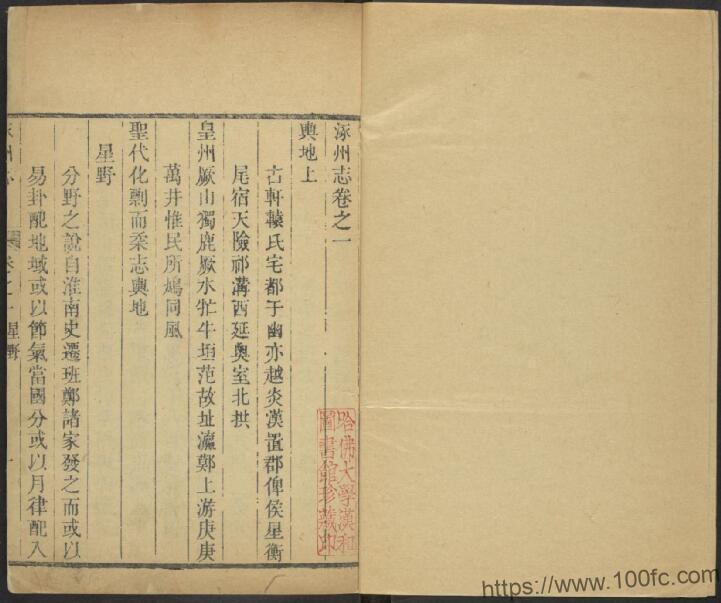 涿州志卷之一
輿地上
古軒轅氏宅都于幽亦越炎漢置郡俾侯星衡
尾宿天險祁溝西延奥室北拱
皇州厥山獨鹿厥水牤牛垣范故址瀛鄭上游庚庚
萬井惟民所鳩同風
聖代化剽而柔志輿地
星野
分野之說自淮南史遷班鄭諸家發之而或以
易卦配地域或以節氣當國分或以月律配入
涿州志 卷之一 星野 一
哈佛大學漢和
圖書館珍藏印
https://www.100fc.com